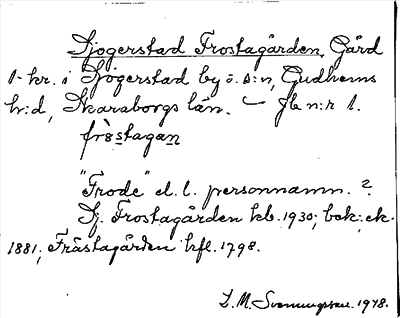 Sjogerstad Frostagården, Gård
1 kr. i Sjogerstad by o. s:n, Gudhems
h:d, Skaraborgs län. – Jb n:r 1.
fròstagan
"Frode" el. l. personnamn. ?
Sj. Frostagården kb. 1930; bok: ek.
1881; Fråstagården hfl. 1798.
L. M. Svenungsson. 1948.